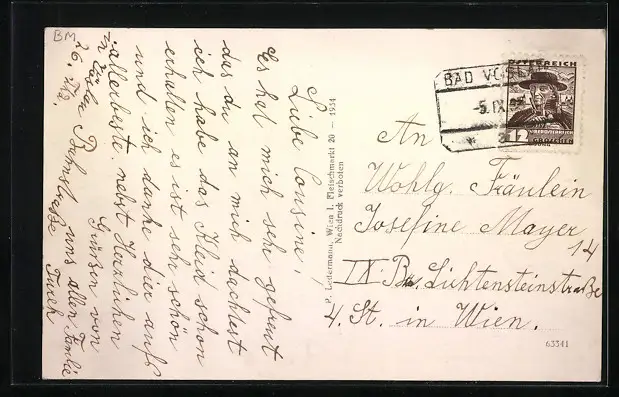 BM
Liebe Cousine!
Es hat mich sehr gefreut
das du an mich dachtest
ich habe das Kleid schon
erhalten es ist sehr schön
und ich danke dier aufs
allerbeste, nebst Herzlichen
Grüßen von
uns allen Familie
Turek
26.
Bahnstraße
P. Ledermann, Wien I. Fleischmarkt 20 — 1934
Nachdruck verboten
BAD VÖSLAU
-5.IX
ÖSTERREICH
12
GROSCHEN
An
Wohlg. Fräulein
Josefine Mayer
IX. Bz. Lichtensteinstraße 14
4. St. in Wien.
63341